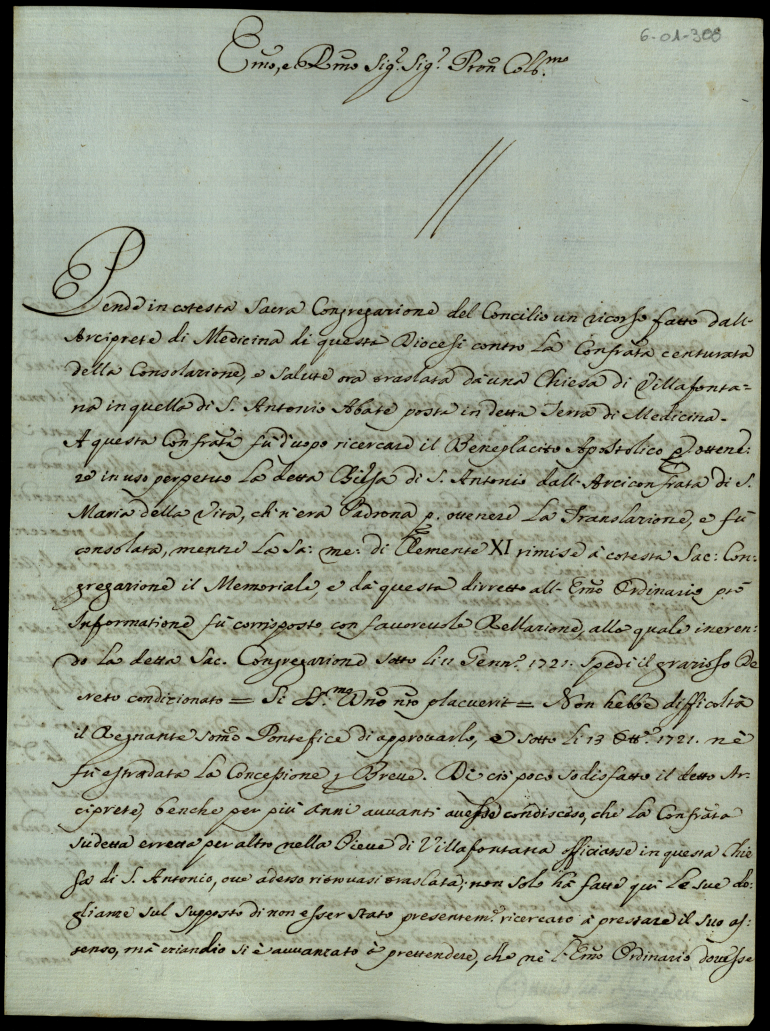 6-01-308
Em͞o, e Rm͞o Sig.r Sig.r Pron͞ Colb.mo
Pende in cotesta Sacra Congregazione del Concilio un ricorso fatto dall-
Arciprete di Medicina di questa Diocesi contro La Confrat͞a centurata
della Consolazione, e Salute ora traslata da una Chiesa di Villafonta=
na in quella di S. Antonio Abate posta in detta Terra di Medicina.
A questa Confrat͞a fù d'uopo ricercare il Beneplacito Apostolico p ottene:
re in uso perpetuo La detta Chiesa di S. Antonio dall- Arciconfrat͞a di S.
Maria della Vita, ch'n'era Padrona p. ottenere La Translazione, e fù
consolata, mentre La Sa: me: di Clemente XI rimise à cotesta Sac: Con-
gregazione il Memoriale, e dà questa dirretto all- Em͞o Ordinario pro
Informatione fù corrisposto con favorevole Rellazione, alla quale ineren:
do La detta Sac. Congregazione sotto li 11 Genn.o 1721. spedì il grazioso De
creto condizionato = Si SS.mo Dn͞o nr͞o placuerit = Non hebbe difficoltà
il Regnante Som͞o Pontefice di approvarlo, e sotto li 13 Ott.e 1721. n'è
fù estradata La Concessione p Breve. Di ciò poco sodisfatto il detto Ar-
ciprete, benche per più anni avvanti avesse condisceso, che La Confrat͞a
sudetta erretta per altro nella Pieve di Villafontana officiasse in questa Chie
sa di S. Antonio, ove adesso ritrovasi traslata; non solo hà fatte qui Le sue do:
glianze sul supposto di non esser stato presentem.e ricercato à prestare il suo as-
senso, mà eziandio si è avvanzato à prettendere, che nè L'Em͞o Ordinario dovesse